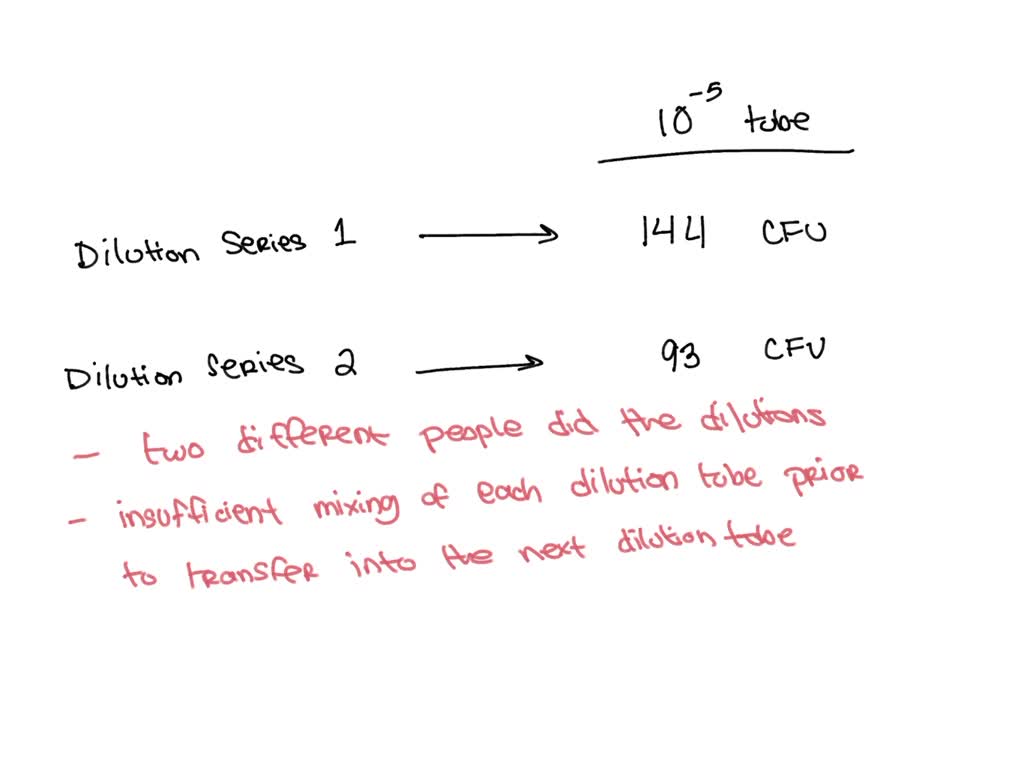 10⁻⁵ tube
Dilution Series 1 → 144 CFU
Dilution Series 2 → 93 CFU
- two different people did the dilutions
- insufficient mixing of each dilution tube prior
to transfer into the next dilution tube